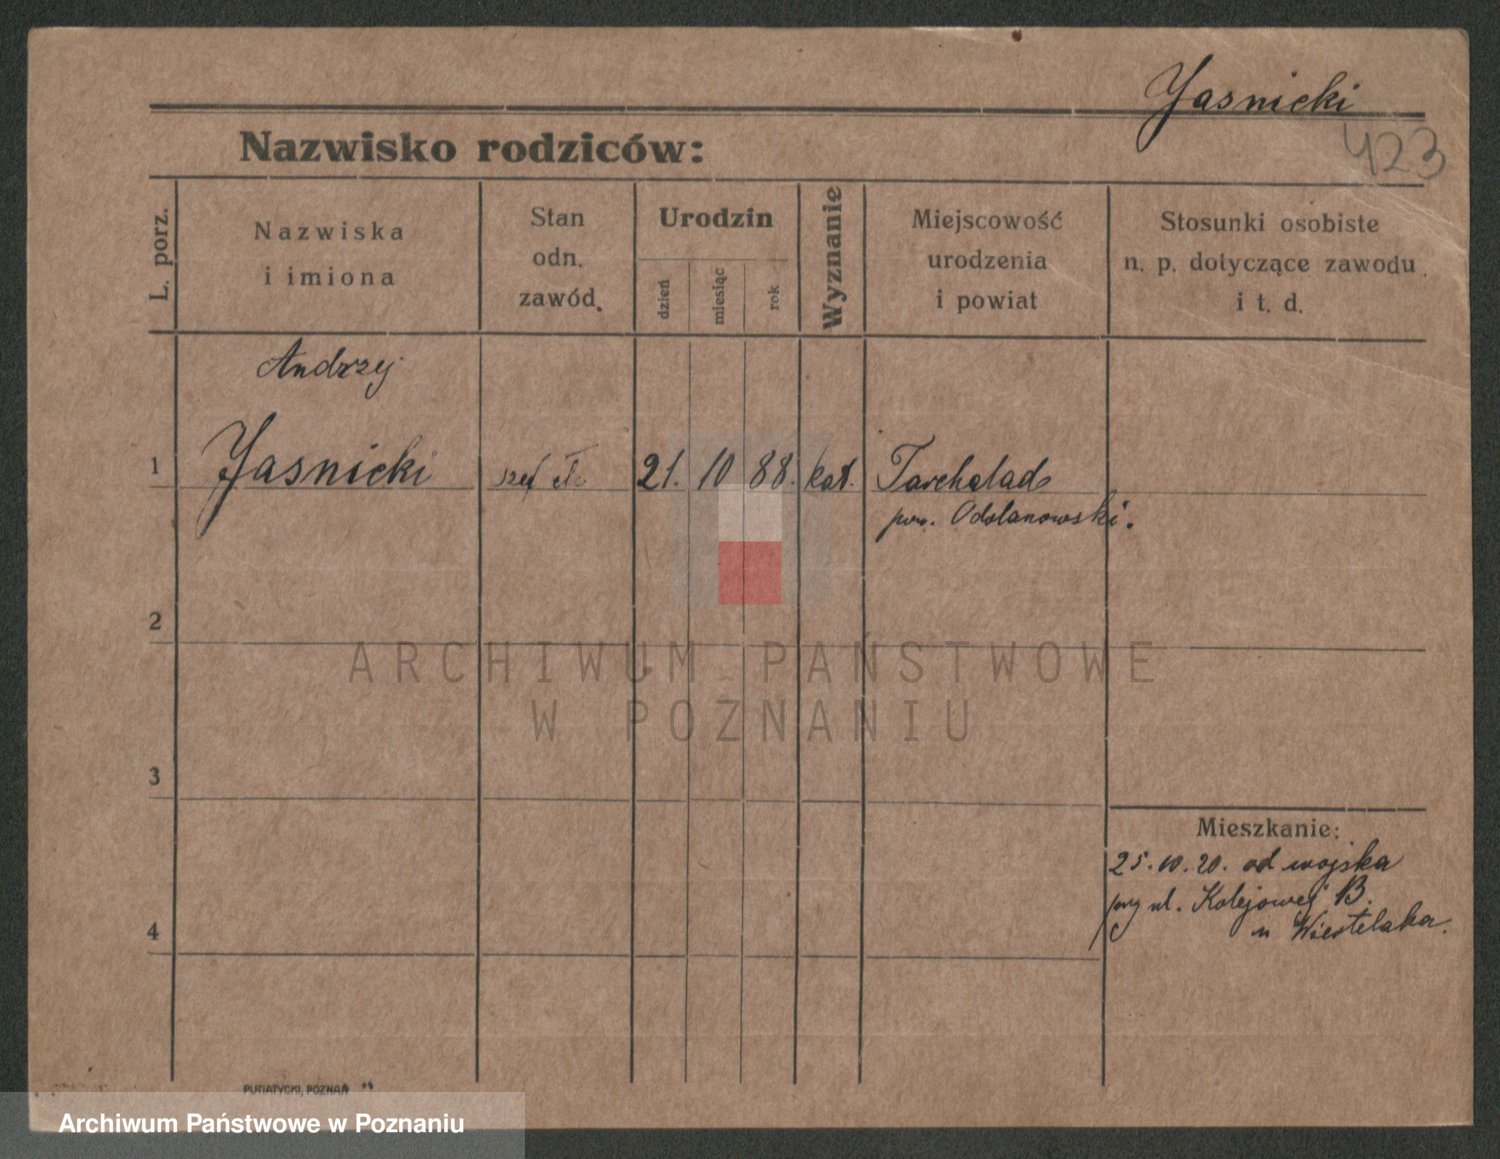 Jasnicki
423
Nazwisko rodziców:
L. porz.
Nazwiska
i imiona
Stan
odn.
zawód.
Urodzin
dzień
miesiąc
rok
Wyznanie
Miejscowość
urodzenia
i powiat
Stosunki osobiste
n. p. dotyczące zawodu
i t. d.
Andrzej
1 Jasnicki 21. 10 88. kat. Tarchalad
pow. Odolanowski.
2
ARCHIWUM PAŃSTWOWE
W POZNANIU
3
Mieszkanie:
25.10.20. od wojska
przy ul. Kolejowej B.
4
u Wiestelaka.
PUTIATYCKI, POZNAŃ
Archiwum Państwowe w Poznaniu